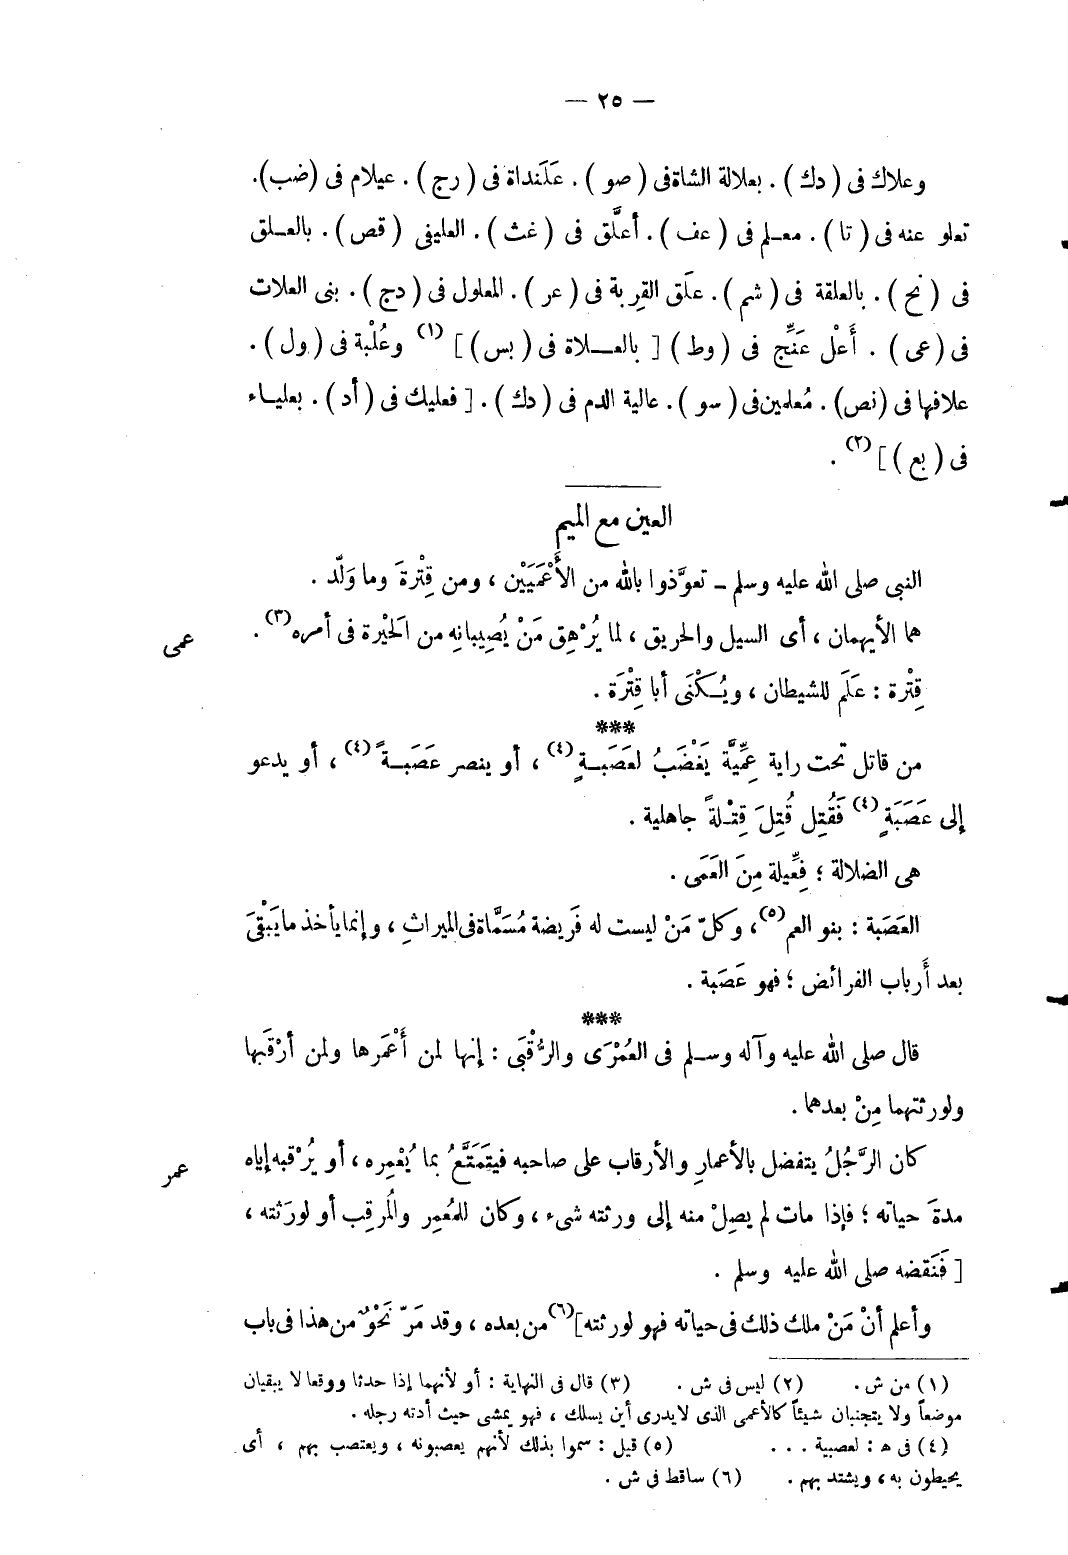 — ٢٥ —
وعلاك فى ( دك ) . بعلالة الشاة فى ( صو ) . عَلَنداة فى ( رج ) . عيلام فى ( ضب ) .
تعلو عنه فى ( تا ) . معـلم فى ( عف ) . أعلَّق فى ( غث ) . العليفى ( قص ) . بالعـلق
فى ( نح ) . بالعلقة فى ( شم ) . علَق القِربة فى ( عر ) . المعلول فى ( دج ) . بنى العلات
فى ( عى ) . أَعْل عَنِّج فى ( وط ) [ بالعـــلاة فى ( بس ) ] (١) وعُلْبة فى ( ول ) .
علافها فى ( نص ) . مُعلمين فى ( سو ) . عالية الدم فى ( دك ) . [ فعليك فى ( أد ) . بعليـاء
فى ( بع ) ] (٢) .
العين مع الميم
النبى صلى الله عليه وسلم ـ تعوَّذوا بالله من الأَعْمَيَيْن ، ومن قِتْرةَ وما وَلَّد .
هما الأيهمان ، أى السيل والحريق ، لما يُرْهِق مَنْ يُصِيبانِه من الَحْيْرة فى أمره (٣) .
عمى
قِتْرة : عَلَم للشيطان ، ويُـكْنَى أبا قِتْرَة .
***
من قاتل تحت راية عِمِّيَّة يَغْضَبُ لعَصَبـةٍ (٤) ، أو ينصر عَصَبـةً (٤) ، أو يدعو
إلى عَصَبَةٍ (٤) فَقُتِل قُتِلَ قِتْـلةً جاهلية .
هى الضلالة ؛ فِعِّيلة مِنَ العَمَى .
العَصَبة : بنو العم (٥) ، وكلّ مَنْ ليست له فَريضة مُسَمَّاة فى الميراثِ ، وإنما يأخذ ما يَبْقَى
بعد أَرباب الفرائض ؛ فهو عَصَبة .
***
قال صلى الله عليه وآله وسـلم فى العُمْرَى والرُّقْبَى : إنها لمن أَعْمَرها ولمن أرْقَبها
ولورثتهما مِنْ بعدهما .
كان الرَّجُلُ يتفضل بالأعمارِ والأرقاب على صاحبه فيَتَمَتَّعُ بما يُعْمِره ، أو يُرْقبه إياه
عمر
مدةَ حياته ؛ فإذا مات لم يصِلْ منه إلى ورثته شىء ، وكان للمُعمِر والمُرقِب أو لورَثته ،
[ فَنَقضه صلى الله عليه وسلم .
وأعلم أنْ مَنْ ملك ذلك فى حياته فهو لورثته ] (٦) من بعده ، وقد مَرّ نَحْوٌ من هذا فى باب
(١) من ش . (٢) ليس فى ش . (٣) قال فى النهاية : أو لأنهما إذا حدثا ووقعا لا يبقيان
موضعاً ولا يتجنبان شيئاً كالأعمى الذى لا يدرى أين يسلك ، فهو يمشى حيث أدته رجله .
(٤) فى هـ : لعصبية . . . (٥) قيل : سموا بذلك لأنهم يعصبونه ، ويعتصب بهم ، أى
يحيطون به ، ويشتد بهم . (٦) ساقط فى ش .